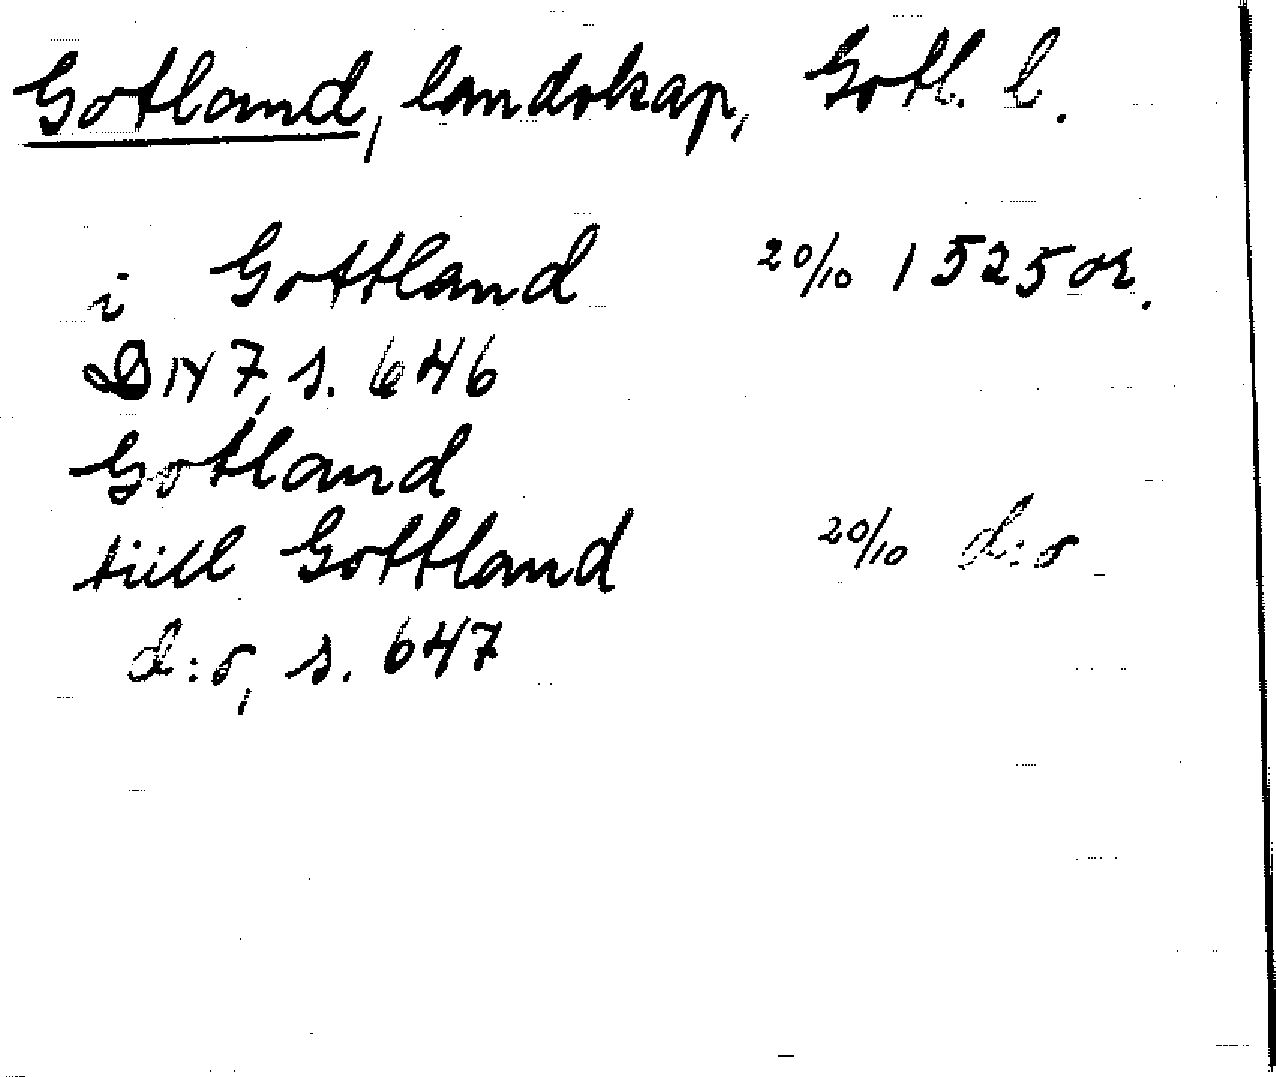 Gotland, landskap, Gotl. l.
i Gottland 20/10 1525 or.
DN 7, s. 646
Gotland
tiill Gottland 20/10 d:o
d:o, s. 647